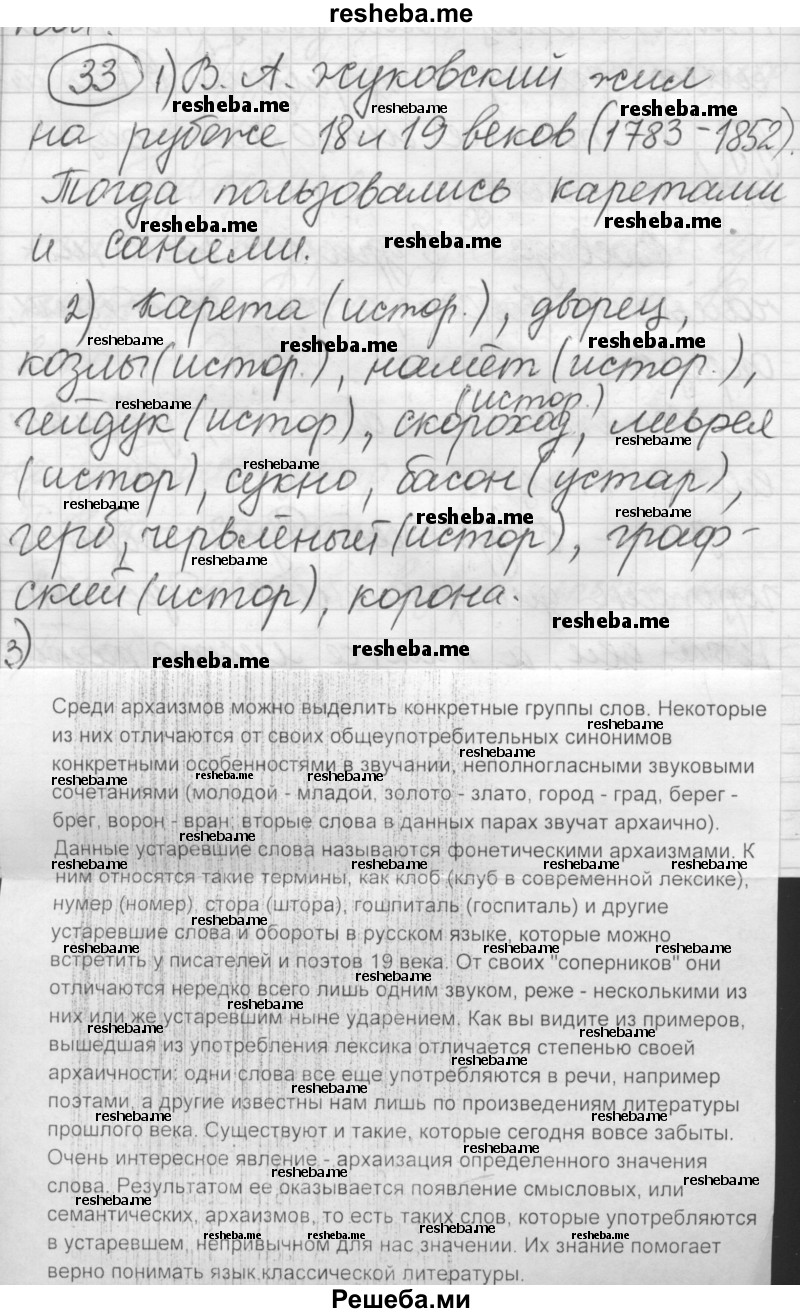 resheba.me
33 1) В. А. Жуковский жил
на рубеже 18 и 19 веков (1783-1852).
Тогда пользовались каретами
и санями.
2) карета (истор.), дворец,
козлы (истор.), намёт (истор.),
гейдук (истор), скороход (истор.), ливрея
(истор), сукно, басон (устар),
герб, червлёный (истор), граф-
ский (истор), корона.
3)
Среди архаизмов можно выделить конкретные группы слов. Некоторые
из них отличаются от своих общеупотребительных синонимов
конкретными особенностями в звучании, неполногласными звуковыми
сочетаниями (молодой - младой, золото - злато, город - град, берег -
брег, ворон - вран; вторые слова в данных парах звучат архаично).
Данные устаревшие слова называются фонетическими архаизмами. К
ним относятся такие термины, как клоб (клуб в современной лексике),
нумер (номер), стора (штора), гошпиталь (госпиталь) и другие
устаревшие слова и обороты в русском языке, которые можно
встретить у писателей и поэтов 19 века. От своих "соперников" они
отличаются нередко всего лишь одним звуком, реже - несколькими из
них или же устаревшим ныне ударением. Как вы видите из примеров,
вышедшая из употребления лексика отличается степенью своей
архаичности: одни слова все еще употребляются в речи, например
поэтами, а другие известны нам лишь по произведениям литературы
прошлого века. Существуют и такие, которые сегодня вовсе забыты.
Очень интересное явление - архаизация определенного значения
слова. Результатом ее оказывается появление смысловых, или
семантических, архаизмов, то есть таких слов, которые употребляются
в устаревшем, непривычном для нас значении. Их знание помогает
верно понимать язык классической литературы.
Решеба.ми